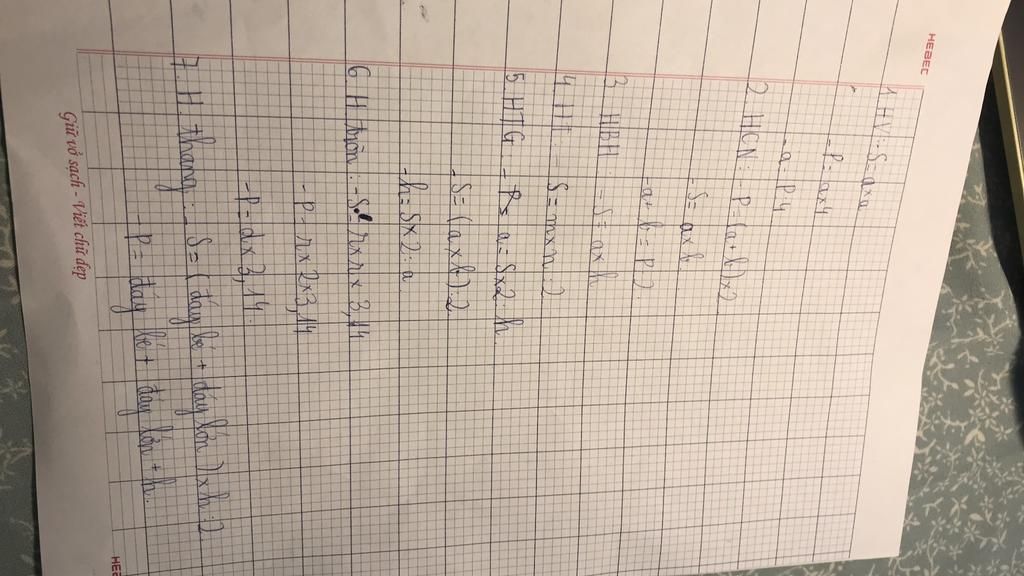 HEBEC
1. HV: - S. axa
- P = ax4
- a = P:4
2. HCN: - P = (a+b)x2
- S = axb.
- a+b = P:2
3 HBH: - S = axh
4 HT: - S = mxn:2
5 HTG: - a = Sx2:h
- S = (axh):2
- h = Sx2:a
6 H tròn: - S = rxrx3,14
- P = rx2x3,14
- P = dx3,14.
7. H. thang: - S = (đáy bé + đáy lớn)xh:2
- P = đáy bé + đáy lớn + h.
Giữ vở sạch - Viết chữ đẹp